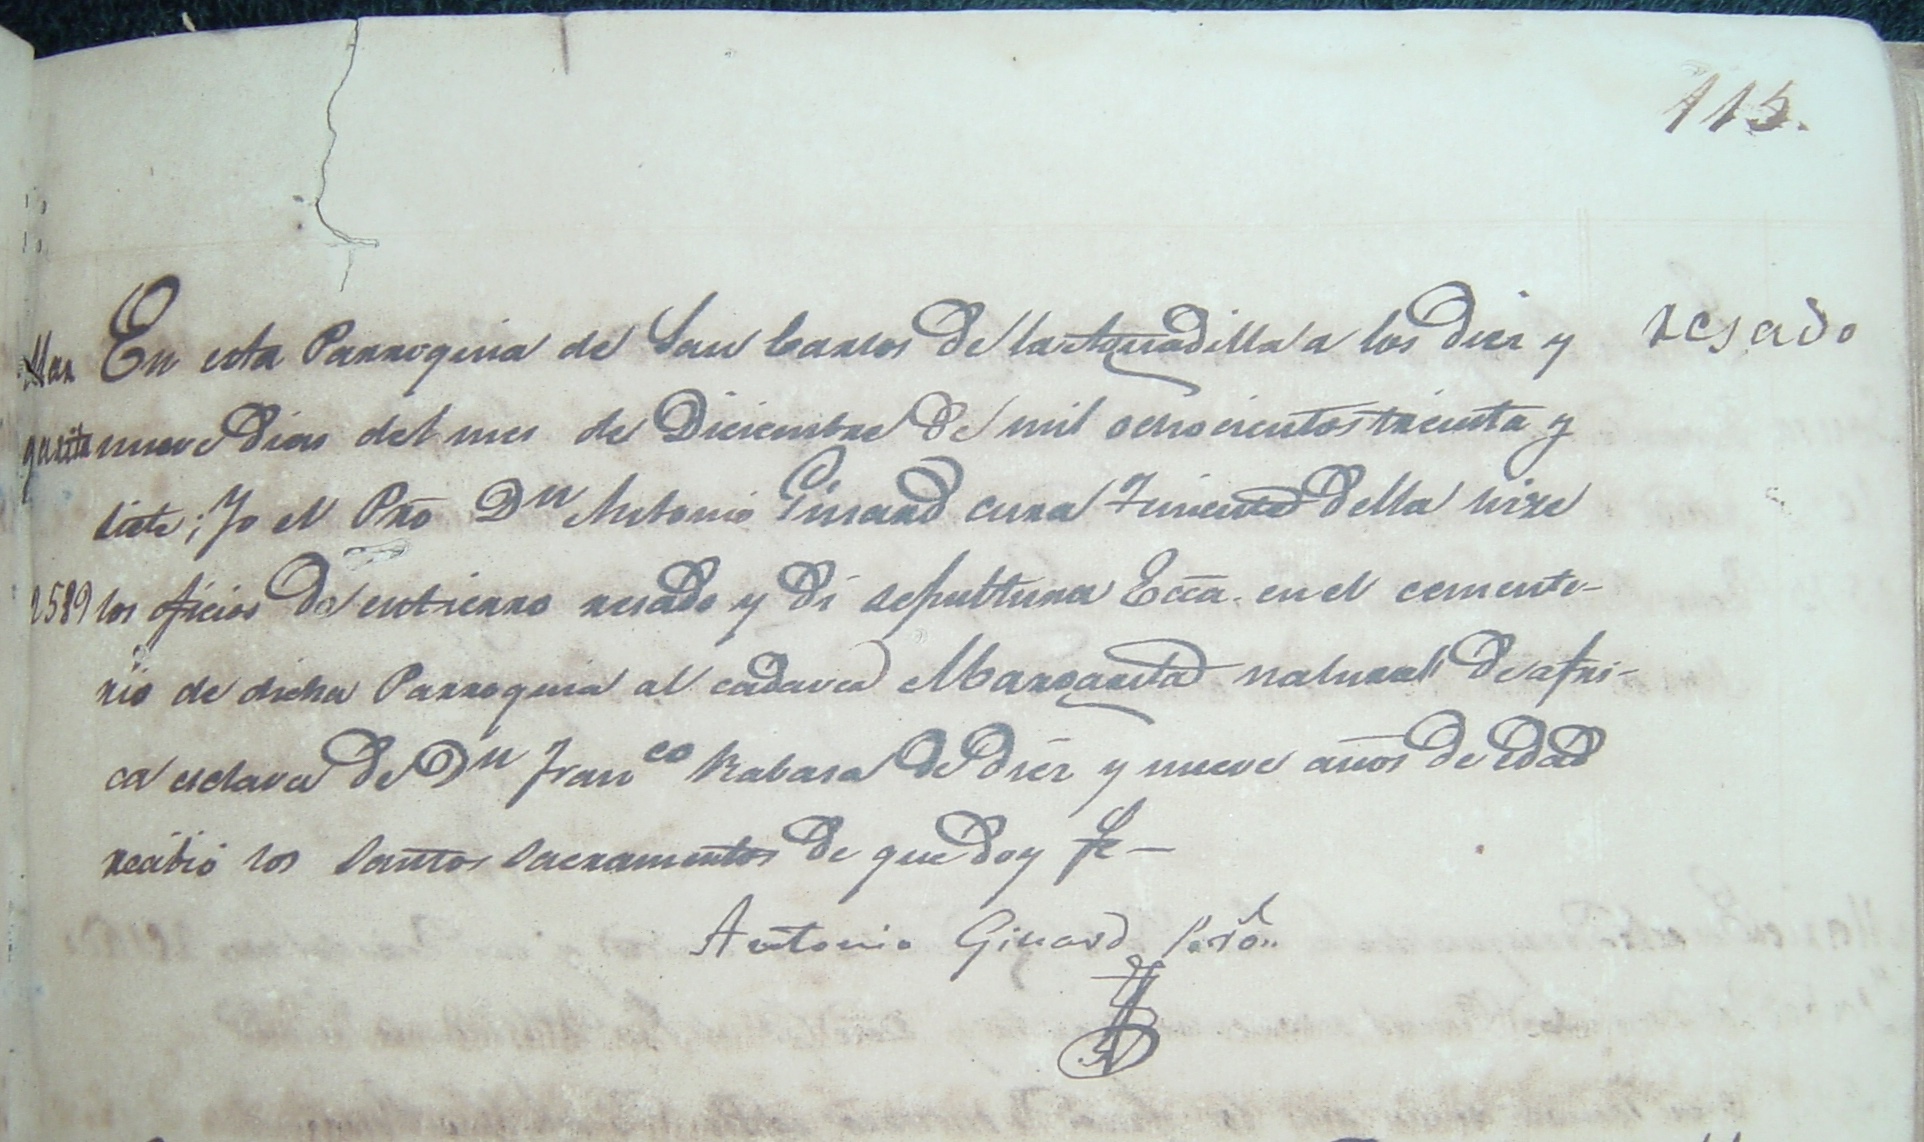 115.
Mar
garita
2589
En esta Parroquia de San Carlos de la Aguadilla a los diez y
nueve dias del mes de Diciembre de mil ochocientos treinta y
siete; Yo el Pño Dn Antonio Ginard cura Tiniente della hize
los oficios de entierro resado y di sepulttura Ecca. en el cemente-
rio de dicha Parroquia al cadaver Margarita natural de Afri-
ca esclava de Dn Franco Rabasa de diez y nueve años de edad
recibió los Santos Sacramentos de que doy fe—
resado
Antonio Ginard